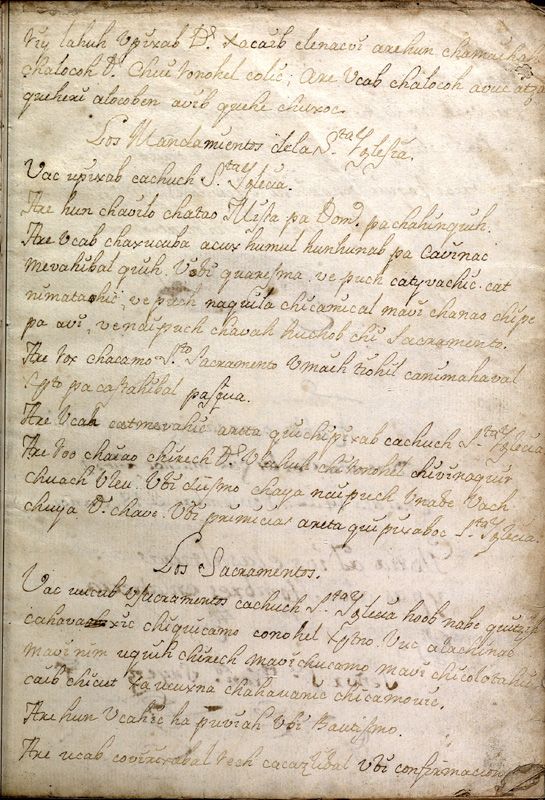 riy lahuh vpixab D.s xacaib elenacvi are hun chamaiha
chalocoh D.s Chuv ronohel colic; Are Vcab chalocoh avuc atza
queheri alocoben avib quehe chuxoc.
Los Mandamientos dela S.ta Yglesia.
Vac upixab cachuch S.ta Yglecia.
Are hun chavilo chatao Missa pa Dom.o pa chahinquih.
Are Vcab chaxucuba acux humul hunhunab pa Cavinac
mevahibal quih. Vbi quaresma. ve puch catyvachic. cat
nimatahic, ve puch naquila chicamical mavi chanao chipe
pa avi, ve nai puch chavah huchob chi Sacramento.
Are rox chacamo S.to Sacramento Vmach tiohil canimahaval
Xpto pa castahibal pasqua.
Are Vcah catmevahic areta qui chipixab cachuch S.ta Yglecia
Are roo chaiao chirech D.s Vlahuh chi ronohel chivinaquir
chuach Vleu. Vbi diesmo chaya nai puch Vnabe Vach
chuya D.s chave. Vbi primicias areta qui pixaboc S.ta Yglecia.
Los Sacramentos.
Vac uucub vsacramentos cachuch S.ta Yglecia hoob nabe
cahavaxic chiquicamo conohel Xptno. Vuc alachinac
mavi nim uquih chirech mavi chucamo mavi chicolotahic
caib chicut xa ucuxna chahauanic chicamovic,
Are hun Vcahic ha puviah Vbi Bautismo.
Are ucab covirixabal rech cacaxlibal vbi confirmacion